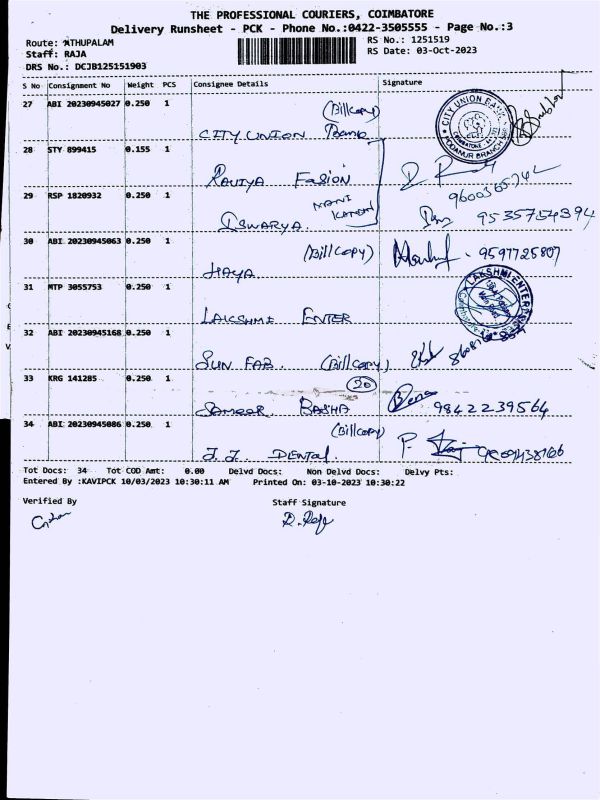 THE PROFESSIONAL COURIERS, COIMBATORE
Delivery Runsheet - PCK - Phone No.:0422-3505555 - Page No.:3
Route: ATHUPALAM
RS No.: 1251519
Staff: RAJA
RS Date: 03-Oct-2023
DRS No.: DCJB125151903
S No Consignment No Weight PCS Consignee Details Signature
27 ABI 20230945027 0.250 1 (Billcopy)
CITY UNION Bank
CITY UNION BANK
28 STY 899415 0.155 1
RAVIYA FASION
29 RSP 1820932 0.250 1 MANI
ISWARYA. 9535754394
30 ABI 20230945063 0.250 1 (Billcopy) 9597725807
HAYA.
31 MTP 3055753 0.250 1
LAKSHMI ENTER
LAKSHMI ENTER
32 ABI 20230945168 0.250 1
SUN FAB. (Billcopy)
33 KRG 141285 0.250 1 20
SAMEER BASHA 9842239564
34 ABI 20230945086 0.250 1 (Billcopy)
J.J. DENTAL P.
Tot Docs: 34 Tot COD Amt: 0.00 Delvd Docs: Non Delvd Docs: Delvy Pts:
Entered By :KAVIPCK 10/03/2023 10:30:11 AM Printed On: 03-10-2023 10:30:22
Verified By Staff Signature